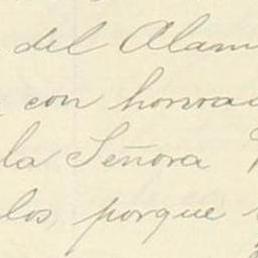 del Alam
con honra
la Señora
los, porque